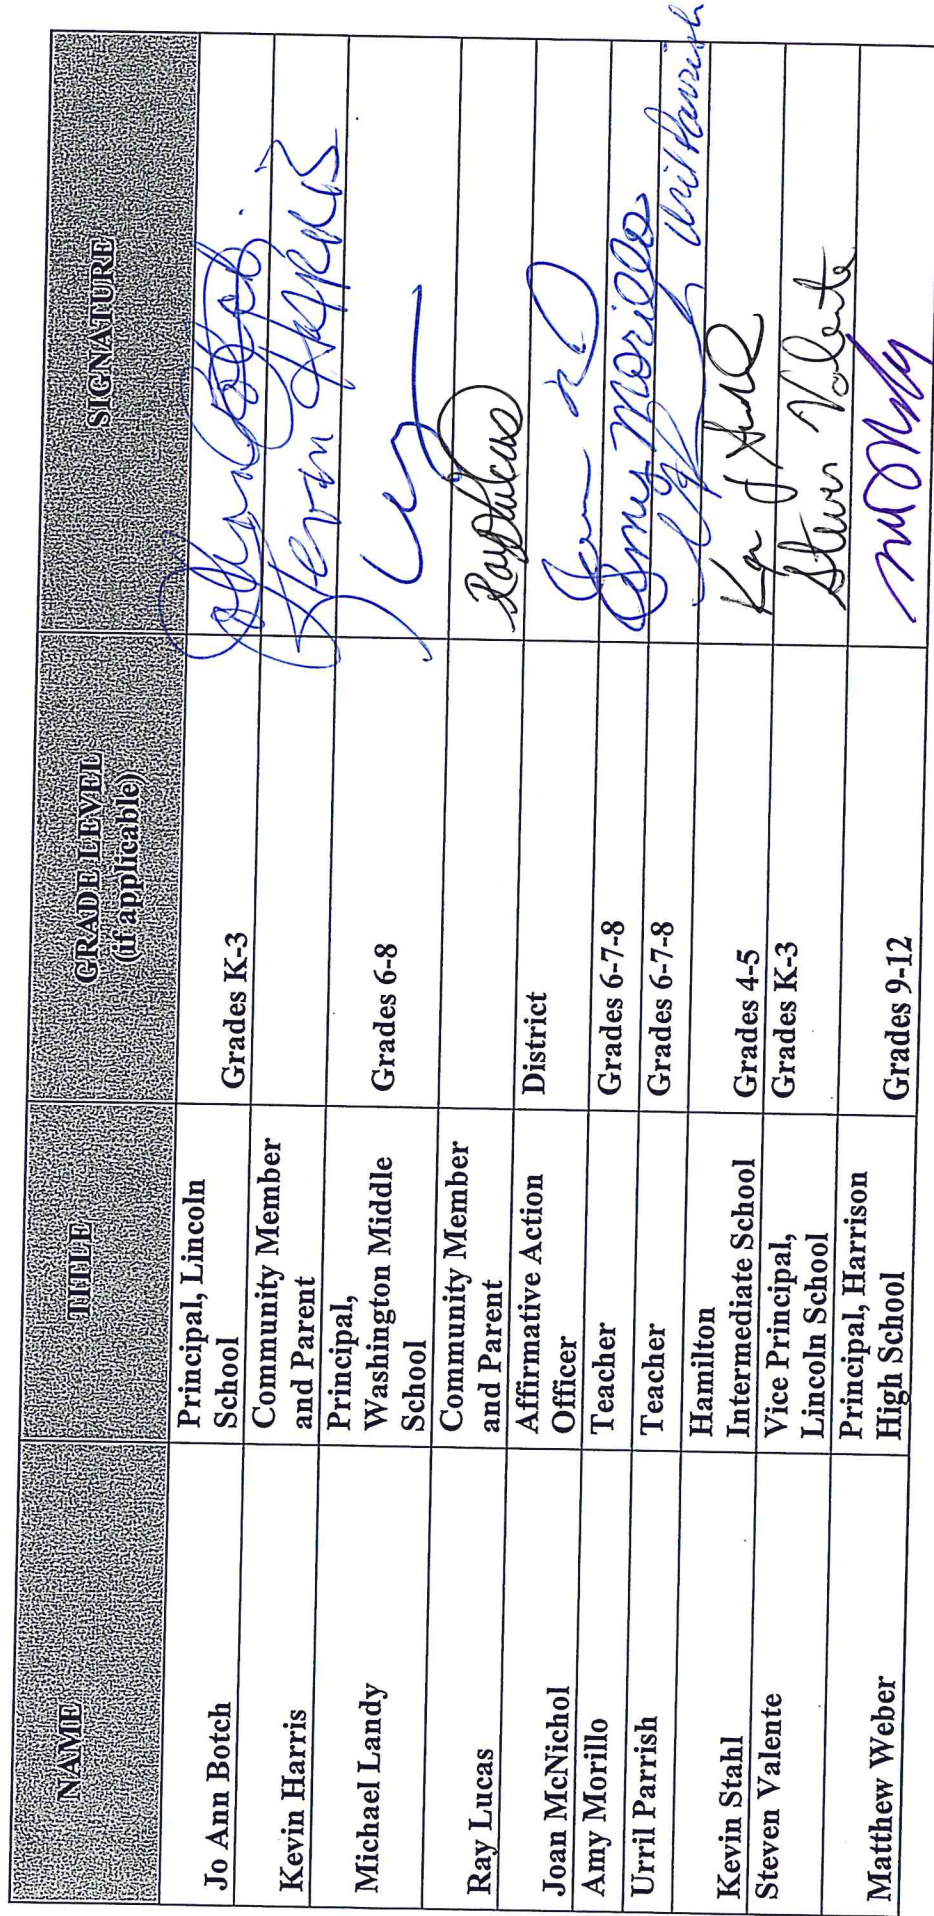 NAME
TITLE
GRADE LEVEL
(if applicable)
SIGNATURE
Jo Ann Botch
Principal, Lincoln
School
Grades K-3
Kevin Harris
Community Member
and Parent
Kevin HARRIS
Michael Landy
Principal,
Washington Middle
School
Grades 6-8
Ray Lucas
Community Member
and Parent
Ray Lucas
Joan McNichol
Affirmative Action
Officer
District
Amy Morillo
Teacher
Grades 6-7-8
Amy Morillo
Urril Parrish
Teacher
Grades 6-7-8
Urril Parrish
Kevin Stahl
Hamilton
Intermediate School
Grades 4-5
Steven Valente
Vice Principal,
Lincoln School
Grades K-3
Steven Valente
Matthew Weber
Principal, Harrison
High School
Grades 9-12